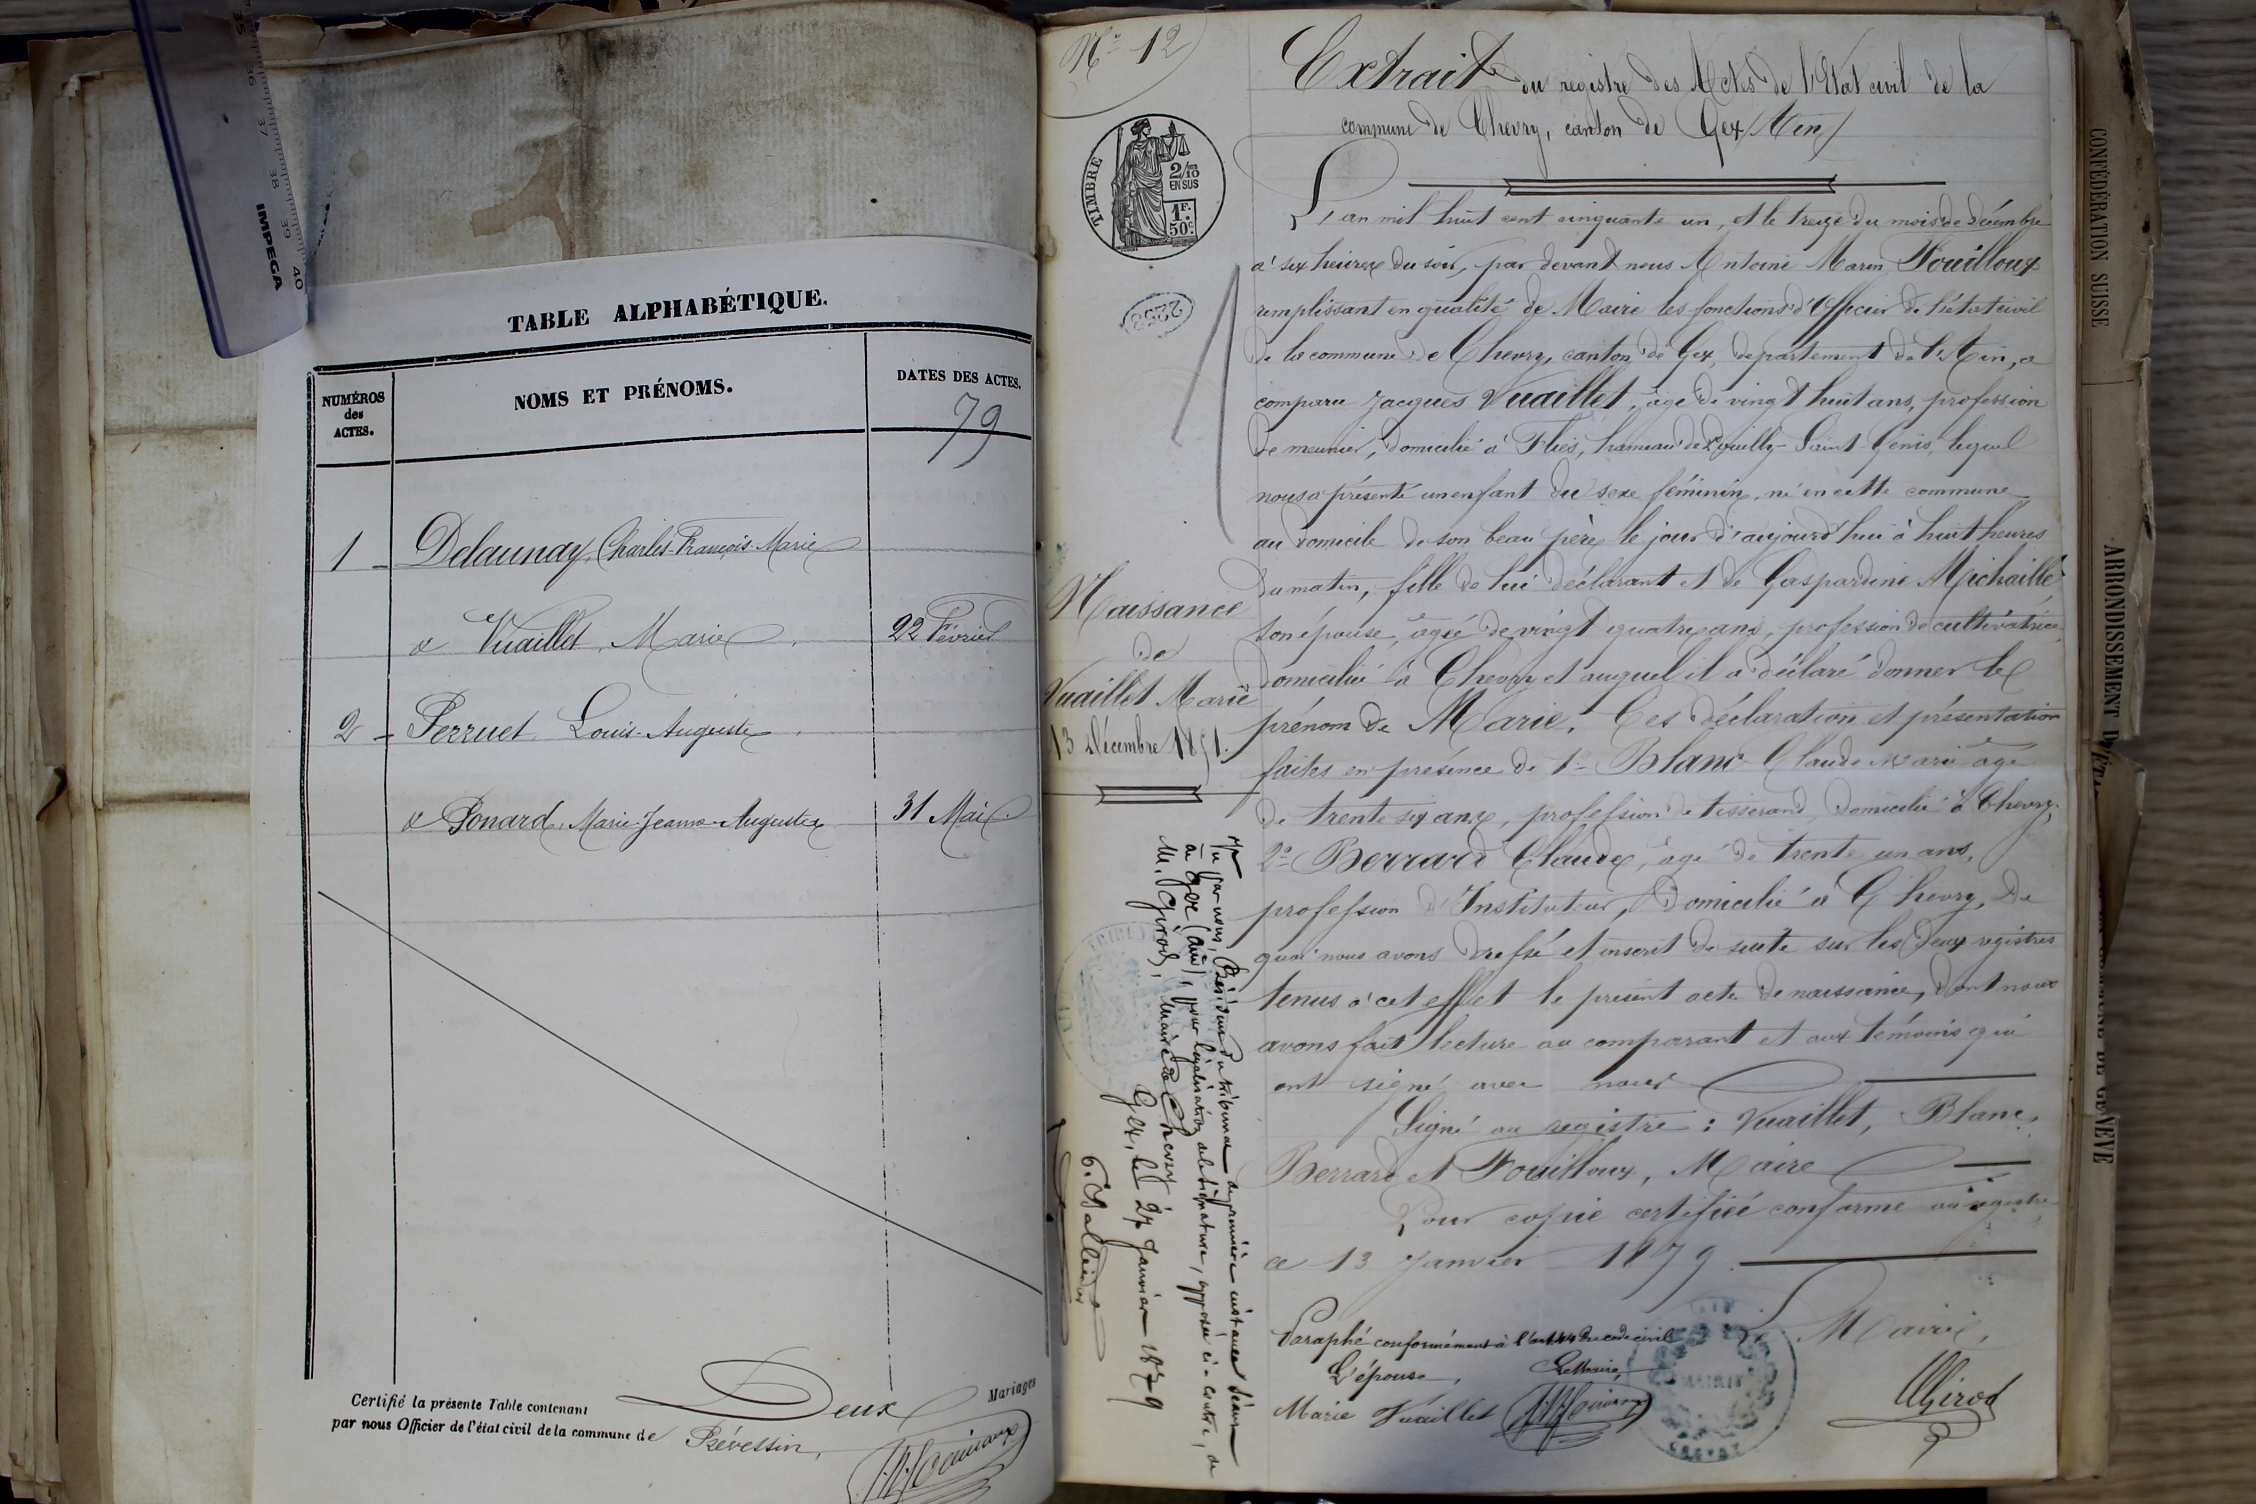 TABLE ALPHABÉTIQUE.
NUMÉROS
des
ACTES.
NOMS ET PRÉNOMS.
DATES DES ACTES.
79
1 - Delaunay, Charles-François-Marie
& Vuaillet, Marie, 22 Février
2 - Perruet Louis-Auguste
& Ponard, Marie-Jeanne-Auguste 31 Mai
Certifié la présente Table contenant Deux Mariages
par nous Officier de l'état civil de la commune de Prévessin,
36 37 38 39 40
IMPEGA
N° 12
TIMBRE
2/10
EN SUS
1 F.
50 c.
Extrait du registre des Actes de l'Etat civil de la
commune de Chevry, canton de Gex (Ain)
L'an mil huit cent cinquante un, et le treize du mois de Décembre
à six heures du soir, par devant nous Antoine Marin Fouilloux
remplissant en qualité de Maire les fonctions d'Officier de l'état civil
de la commune de Chevry, canton de Gex, département de l'Ain, a
comparu Jacques Vuaillet, âgé de vingt huit ans, profession
de meunier, domicilié à Flies, hameau de Pouilly-Saint-Genis, lequel
nous a présenté un enfant du sexe féminin, né en cette commune
au domicile de son beau père le jour d'aujourd'hui à huit heures
du matin, fille de lui déclarant et de Gaspardine Michaille
son épouse, âgée de vingt quatre ans, profession de cultivatrice,
domiciliée à Chevry et auquel il a déclaré donner le
prénom de Marie. Ces déclaration et présentation
faites en présence de 1° Blanc Claude Marie âgé
de trente six ans, profession de tisserand, domicilié à Chevry,
2° Berrard Claude, âgé de trente un ans,
profession d'Instituteur, domicilié à Chevry, De
quoi nous avons dressé et inscrit de suite sur les deux registres
tenus à cet effet le présent acte de naissance, dont nous
avons fait lecture au comparant et aux témoins qui
ont signé avec nous
Signé au registre : Vuaillet, Blanc,
Berrard et Fouilloux, Maire
Pour copie certifiée conforme au registre
ce 13 Janvier 1879.
Le Maire,
Girod
Paraphé conformément à l'art 44 du code civil
L'épouse, Le Maire,
Marie Vuaillet
MAIRIE
CHEVRY
Naissance
de
Vuaillet Marie
13 Décembre 1851.
Vu par nous, Président du tribunal de première instance séant
à Gex (Ain), pour légalisation de la signature, apposée ci-contre, de
M. Girod, maire de Chevry
Gex, le 27 Janvier 1879
CONFÉDÉRATION SUISSE
ARRONDISSEMENT D'ÉT
DE GENÈVE